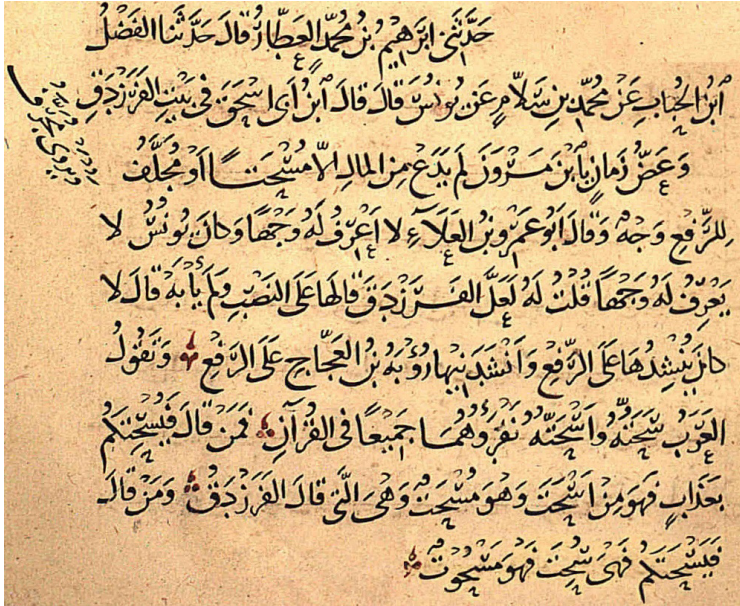 حَدَّثَنِي ابْرَاهِيمُ بْنُ مُحَمَّدٍ العَطَّارُ قَالَ حَدَّثَنَا الفَضْلُ
ابْنُ الحُبَابِ عَنْ مُحَمَّدِ بْنِ سَلَّامٍ عَن يُونُسَ قَالَ قَالَ ابْنُ أَبِي اسْحَقَ فِي بَيْتِ الفَرَزْدَقِ
ويروى مُجَرَّفُ
وَعَضُّ زَمَانٍ يَا بْنَ مَرْوَانَ لَمْ يَدَعْ مِنَ المَالِ الَّا مُسْحَتًا أَوْ مُجَلَّفُ
لِلرَّفْعِ وَجْهٌ وَقَالَ أَبُو عَمْرِو بْنُ العَلَاءِ لا أَعْرِفُ لَهُ وَجْهًا وَكَانَ يُونُسُ لا
يَعْرِفُ لَهُ وَجْهًا قُلْتُ لَهُ لَعَلَّ الفَرَزْدَقَ قَالَهَا عَلَى النَّصْبِ وَلَمْ يَأْبَهْ قَالَ لا
كانَ يُنْشِدُهَا عَلَى الرَّفْعِ وَأَنْشَدَنِيهَا رُؤْبَةُ بْنُ العَجَّاجِ عَلَى الرَّفْعِ وَتَقُولُ
العَرَبُ سَحَتَهُ وَأَسْحَتَهُ نَقْرَؤُهُمَا جَمِيعًا فِي القُرْآنِ فَمَنْ قَالَ فَيُسْحِتَكُمْ
بِعَذَابٍ فَهُوَ مِنْ أَسْحَتَ وَهُوَ مُسْحَتٌ وَهِيَ الَّتِي قَالَ الفَرَزْدَقُ وَمَنْ قَالَ
فَيَسْحَتَكُمْ فَهِيَ سُحِتَ فَهُوَ مَسْحُوتٌ